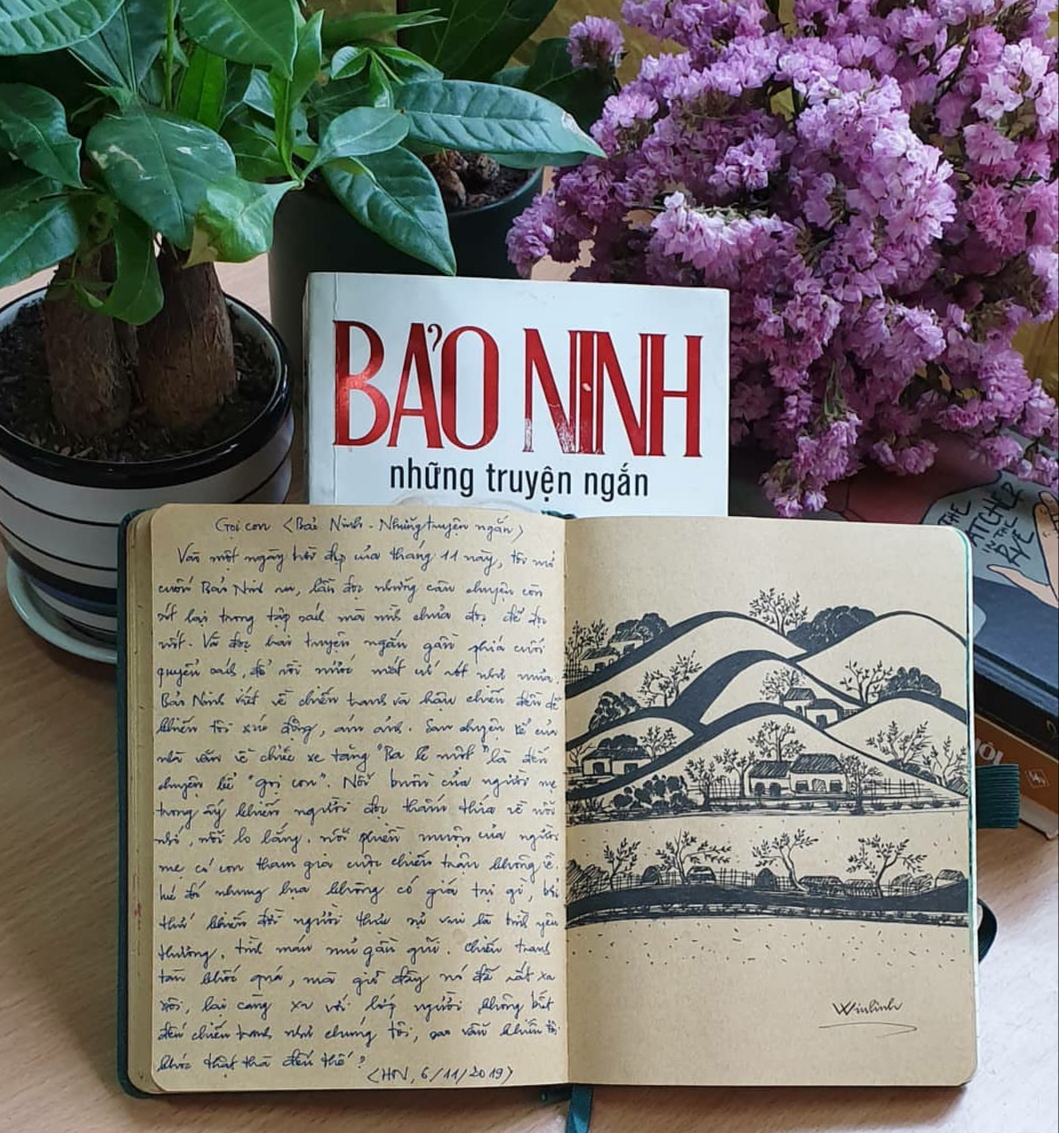 BẢO NINH
những truyện ngắn
THE
CATCHER
IN THE
RYE
Gọi con <Bảo Ninh - Những truyện ngắn>
Vào một ngày trời đẹp của tháng 11 này, tôi mở
cuốn Bảo Ninh ra, lần đọc những câu chuyện còn
sót lại trong tập sách mà mình chưa đọc, để đọc
nốt. Và đọc hai truyện ngắn gần phía cuối
quyển sách, để rồi nước mắt cứ rớt như mưa.
Bảo Ninh viết về chiến tranh và hậu chiến đều để
khiến tôi xúc động, ám ảnh. Sau chuyện kể của
nhà văn về chiếc xe tăng "Ba lẻ một" là đến
chuyện kể "gọi con". Nỗi buồn của người mẹ
trong ấy khiến người đọc thấm thía về nỗi
nhớ, nỗi lo lắng, nỗi phiền muộn của người
mẹ có con tham gia cuộc chiến trận không về.
hế đó nhưng không có giá trị gì, bởi
thứ khiến đời người thực sự vui là tình yêu
thương, tình máu mủ gần gũi. Chiến tranh
tàn khốc quá, mà giờ đây nó đã rất xa
xôi, lại càng xa với lớp người không biết
đến chiến tranh như chúng tôi, sao vẫn khiến tôi
khóc thật thà đến thế?
<HN, 6/11/2019>
Winlinh